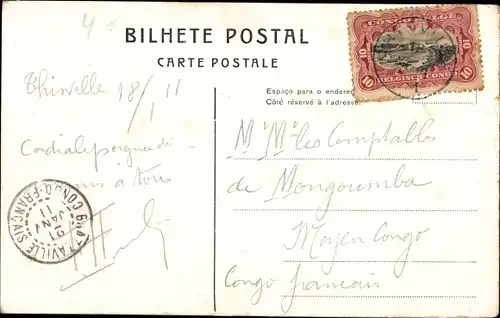 4
BILHETE POSTAL
CARTE POSTALE
Espaço para o endereç
Côté réservé à l'adress
CONGO BELGE
10 10
BELGISCH CONGO
10 10
Thinville 18/1 11
Cordiale poignée de
mains à tous
Mrs les Comptables
de Mongoumba
Moyen Congo
Congo français
BRAZZAVILLE
CONGO-FRANÇAIS
21
JANV
11